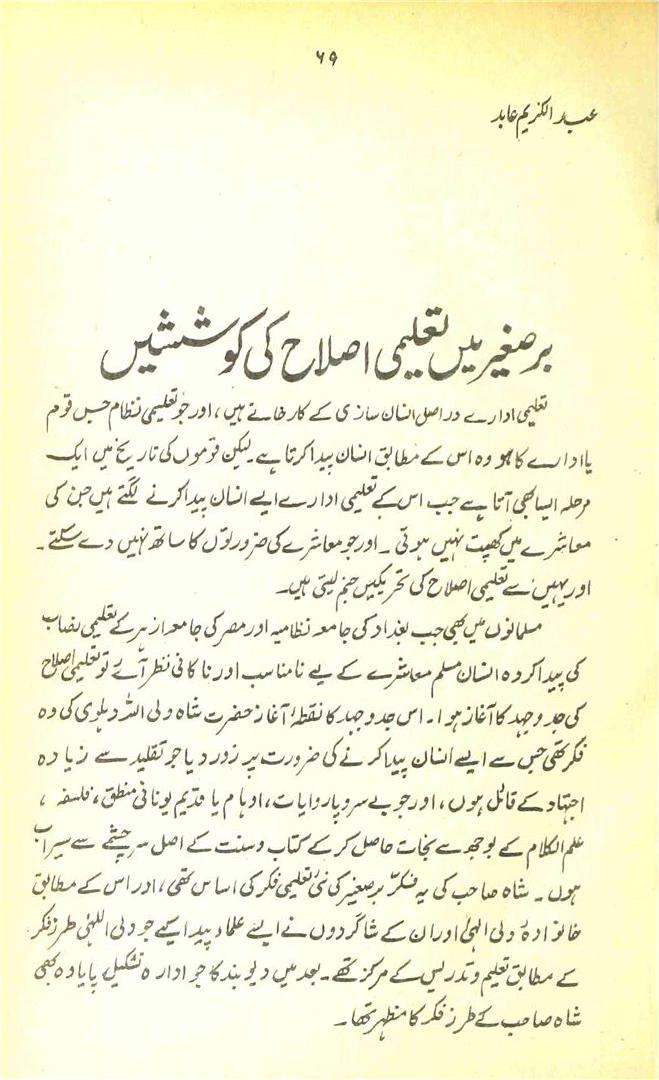 ۶۹
عبدالکریم عابد
برصغیر میں تعلیمی اصلاح کی کوششیں
تعلیمی ادارے دراصل انسان سازی کے کارخانے ہیں، اور جو تعلیمی نظام جس قوم
یا ادارے کا ہو وہ اس کے مطابق انسان پیدا کرتا ہے لیکن قوموں کی تاریخ میں ایک
مرحلہ ایسا بھی آتا ہے جب اس کے تعلیمی ادارے ایسے انسان پیدا کرنے لگتے ہیں جن کی
معاشرے میں کھپت نہیں ہوتی ۔ اور جو معاشرے کی ضرورتوں کا ساتھ نہیں دے سکتے ۔
اور یہیں سے تعلیمی اصلاح کی تحریکیں جنم لیتی ہیں ۔
مسلمانوں میں بھی جب بغداد کی جامعہ نظامیہ اور مصر کی جامعہ ازہر کے تعلیمی نصاب
کی پیدا کردہ انسان مسلم معاشرے کے لیے نامناسب اور ناکافی نظر آئے تو تعلیمی اصلاح
کی جدوجہد کا آغاز ہوا ۔ اس جدوجہد کا نقطۂ آغاز حضرت شاہ ولی اللہ دہلوی کی وہ
فکر تھی جس سے ایسے انسان پیدا کرنے کی ضرورت پر زور دیا جو تقلید سے زیادہ
اجتہاد کے قائل ہوں ، اور جو بے سروپا روایات ، اوہام یا قدیم یونانی منطق ، فلسفہ ،
علم الکلام کے بوجھ سے نجات حاصل کر کے کتاب و سنت کے اصل سرچشمے سے سیراب
ہوں ۔ شاہ صاحب کی یہ فکر برصغیر کی نئی تعلیمی فکر کی اساس تھی ، اور اس کے مطابق
خانوادہ ولی الہیٰ اور ان کے شاگردوں نے ایسے علماء پیدا کیے جو ولی اللہٰی طرز فکر
کے مطابق تعلیم و تدریس کے مرکز تھے ۔ بعد میں دیوبند کا جو ادارہ تشکیل پایا وہ بھی
شاہ صاحب کے طرز فکر کا مظہر تھا ۔